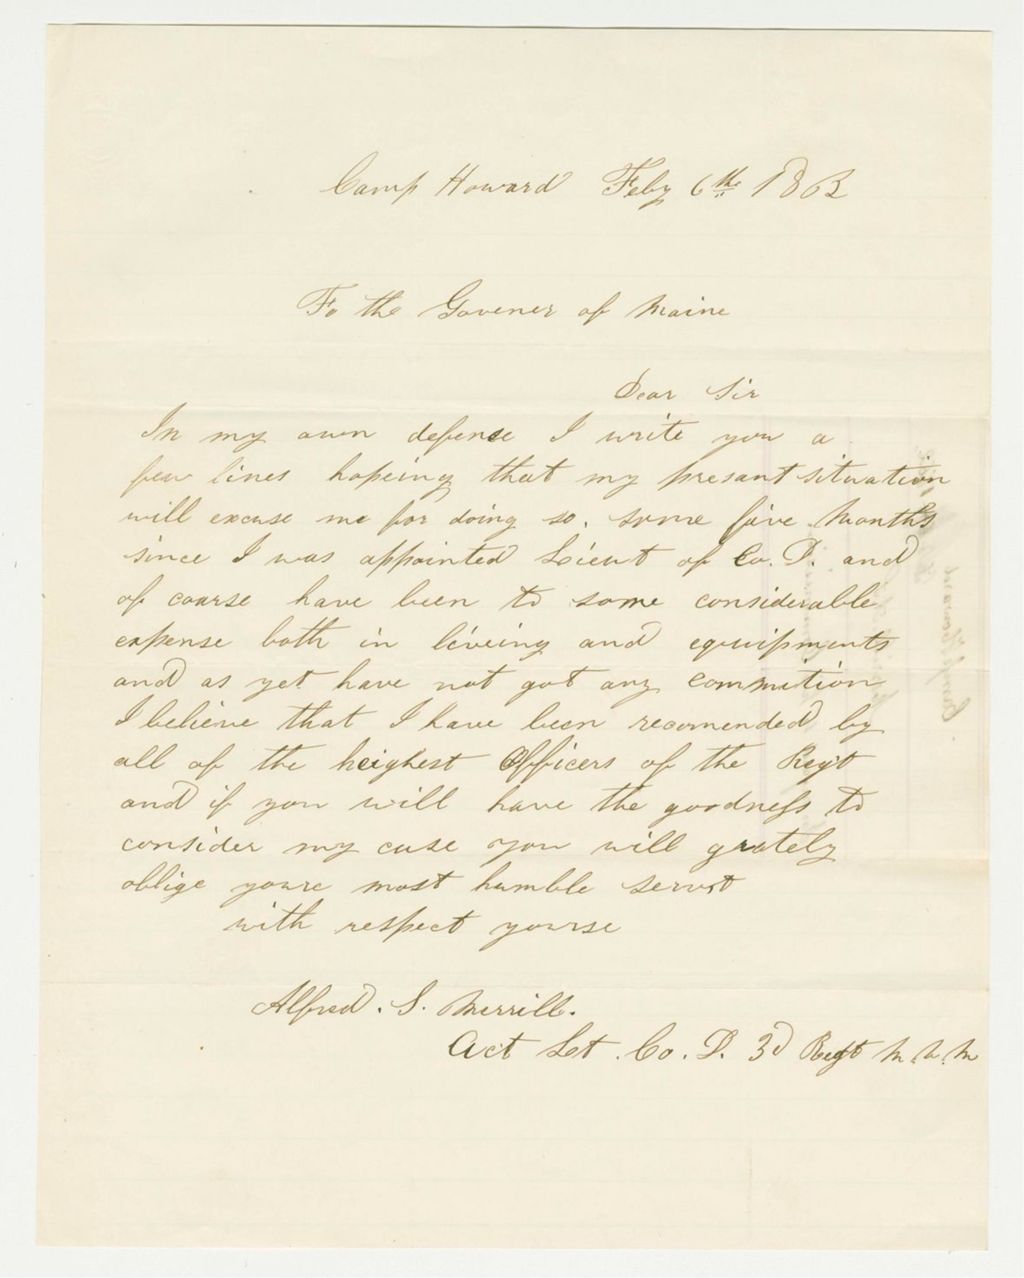 Camp Howard Feby 6th 1862
To the Govener of Maine
Dear Sir
In my own defense I write you a
few lines hopeing that my presant situation
will excuse me for doing so. some five Months
since I was appointed Lieut of Co. D. and
of coarse have been to some considerable
expense both in liveing and equipments
and as yet have not got any commition
I believe that I have been recomended by
all of the heighest Officers of the Regt
and if you will have the goodness to
consider my case you will grately
oblige youre most humble servt
with respect yourse
Alfred. S. Merrill.
Act Let. Co. D. 3d Regt M. V. M